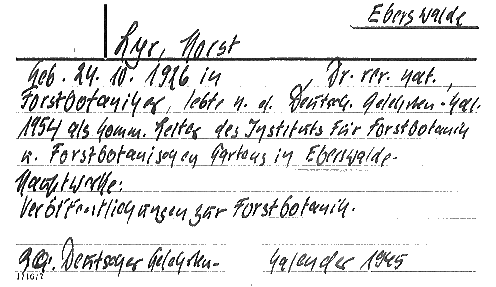 Eberswalde
Lyr, Horst
Geb. 24. 10. 1926 in , Dr. rer. nat.,
Forstbotaniker, lebte n. d. Deutsch. Gelehrten-Kal.
1954 als komm. Leiter des Instituts für Forstbotanik
u. Forstbotanischen Gartens in Eberswalde.
Hauptwerke:
Veröffentlichungen zur Forstbotanik.
Deutscher Gelehrten- Kalender 1945